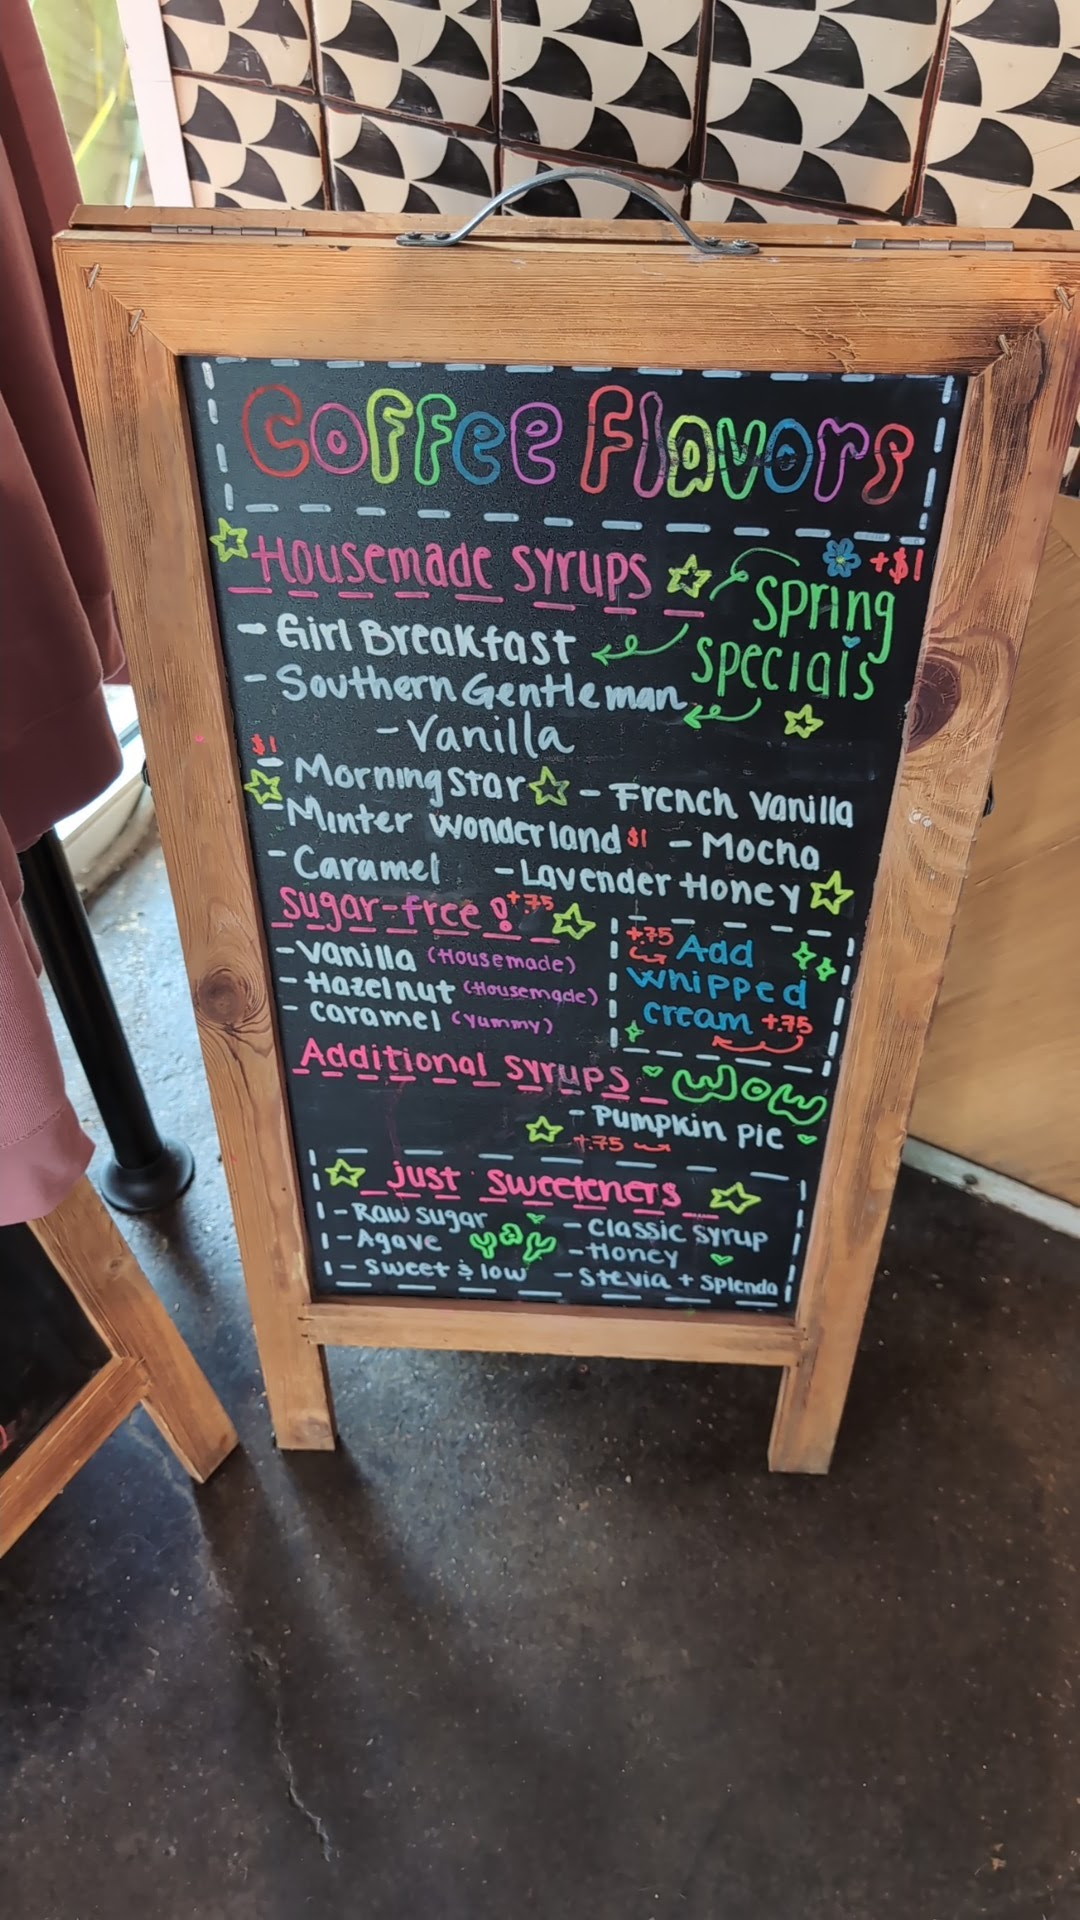 Coffee Flavors
Housemade syrups
+$1
spring
specials
- Girl Breakfast
- Southern Gentleman
- Vanilla
$1
- Morning Star - French vanilla
- Minter wonderland $1 - Mocha
- Caramel - Lavender Honey
Sugar-free! +.75
- vanilla (Housemade)
- Hazelnut (Housemade)
- caramel (yummy)
+.75 Add
whipped
cream +.75
Additional syrups wow
- Pumpkin pie
+.75
just sweeteners
- Raw sugar - Classic syrup
- Agave yay - Honey
- Sweet & low - Stevia + Splenda